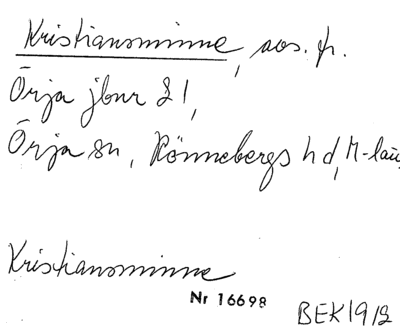 Kristiansminne, avs. fr.
Örja jbnr 21,
Örja sn, Rönnebergs hd, M-län
Kristiansminne
Nr 16698
BEK 1912